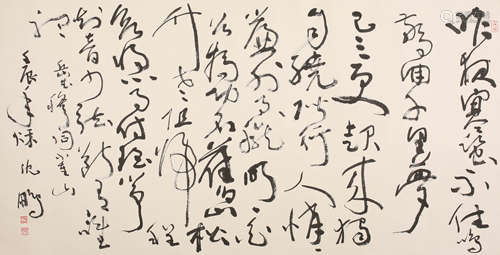 昨夜寒蛩不住鳴
驚回千里夢
已三更起來獨
自繞階行人悄悄
簾外月朧明白
首為功名舊山松
竹老阻歸程
欲將心事付瑤箏
知音少弦斷有誰
聽 岳武穆詞小重山
壬辰年秋 沈鵬